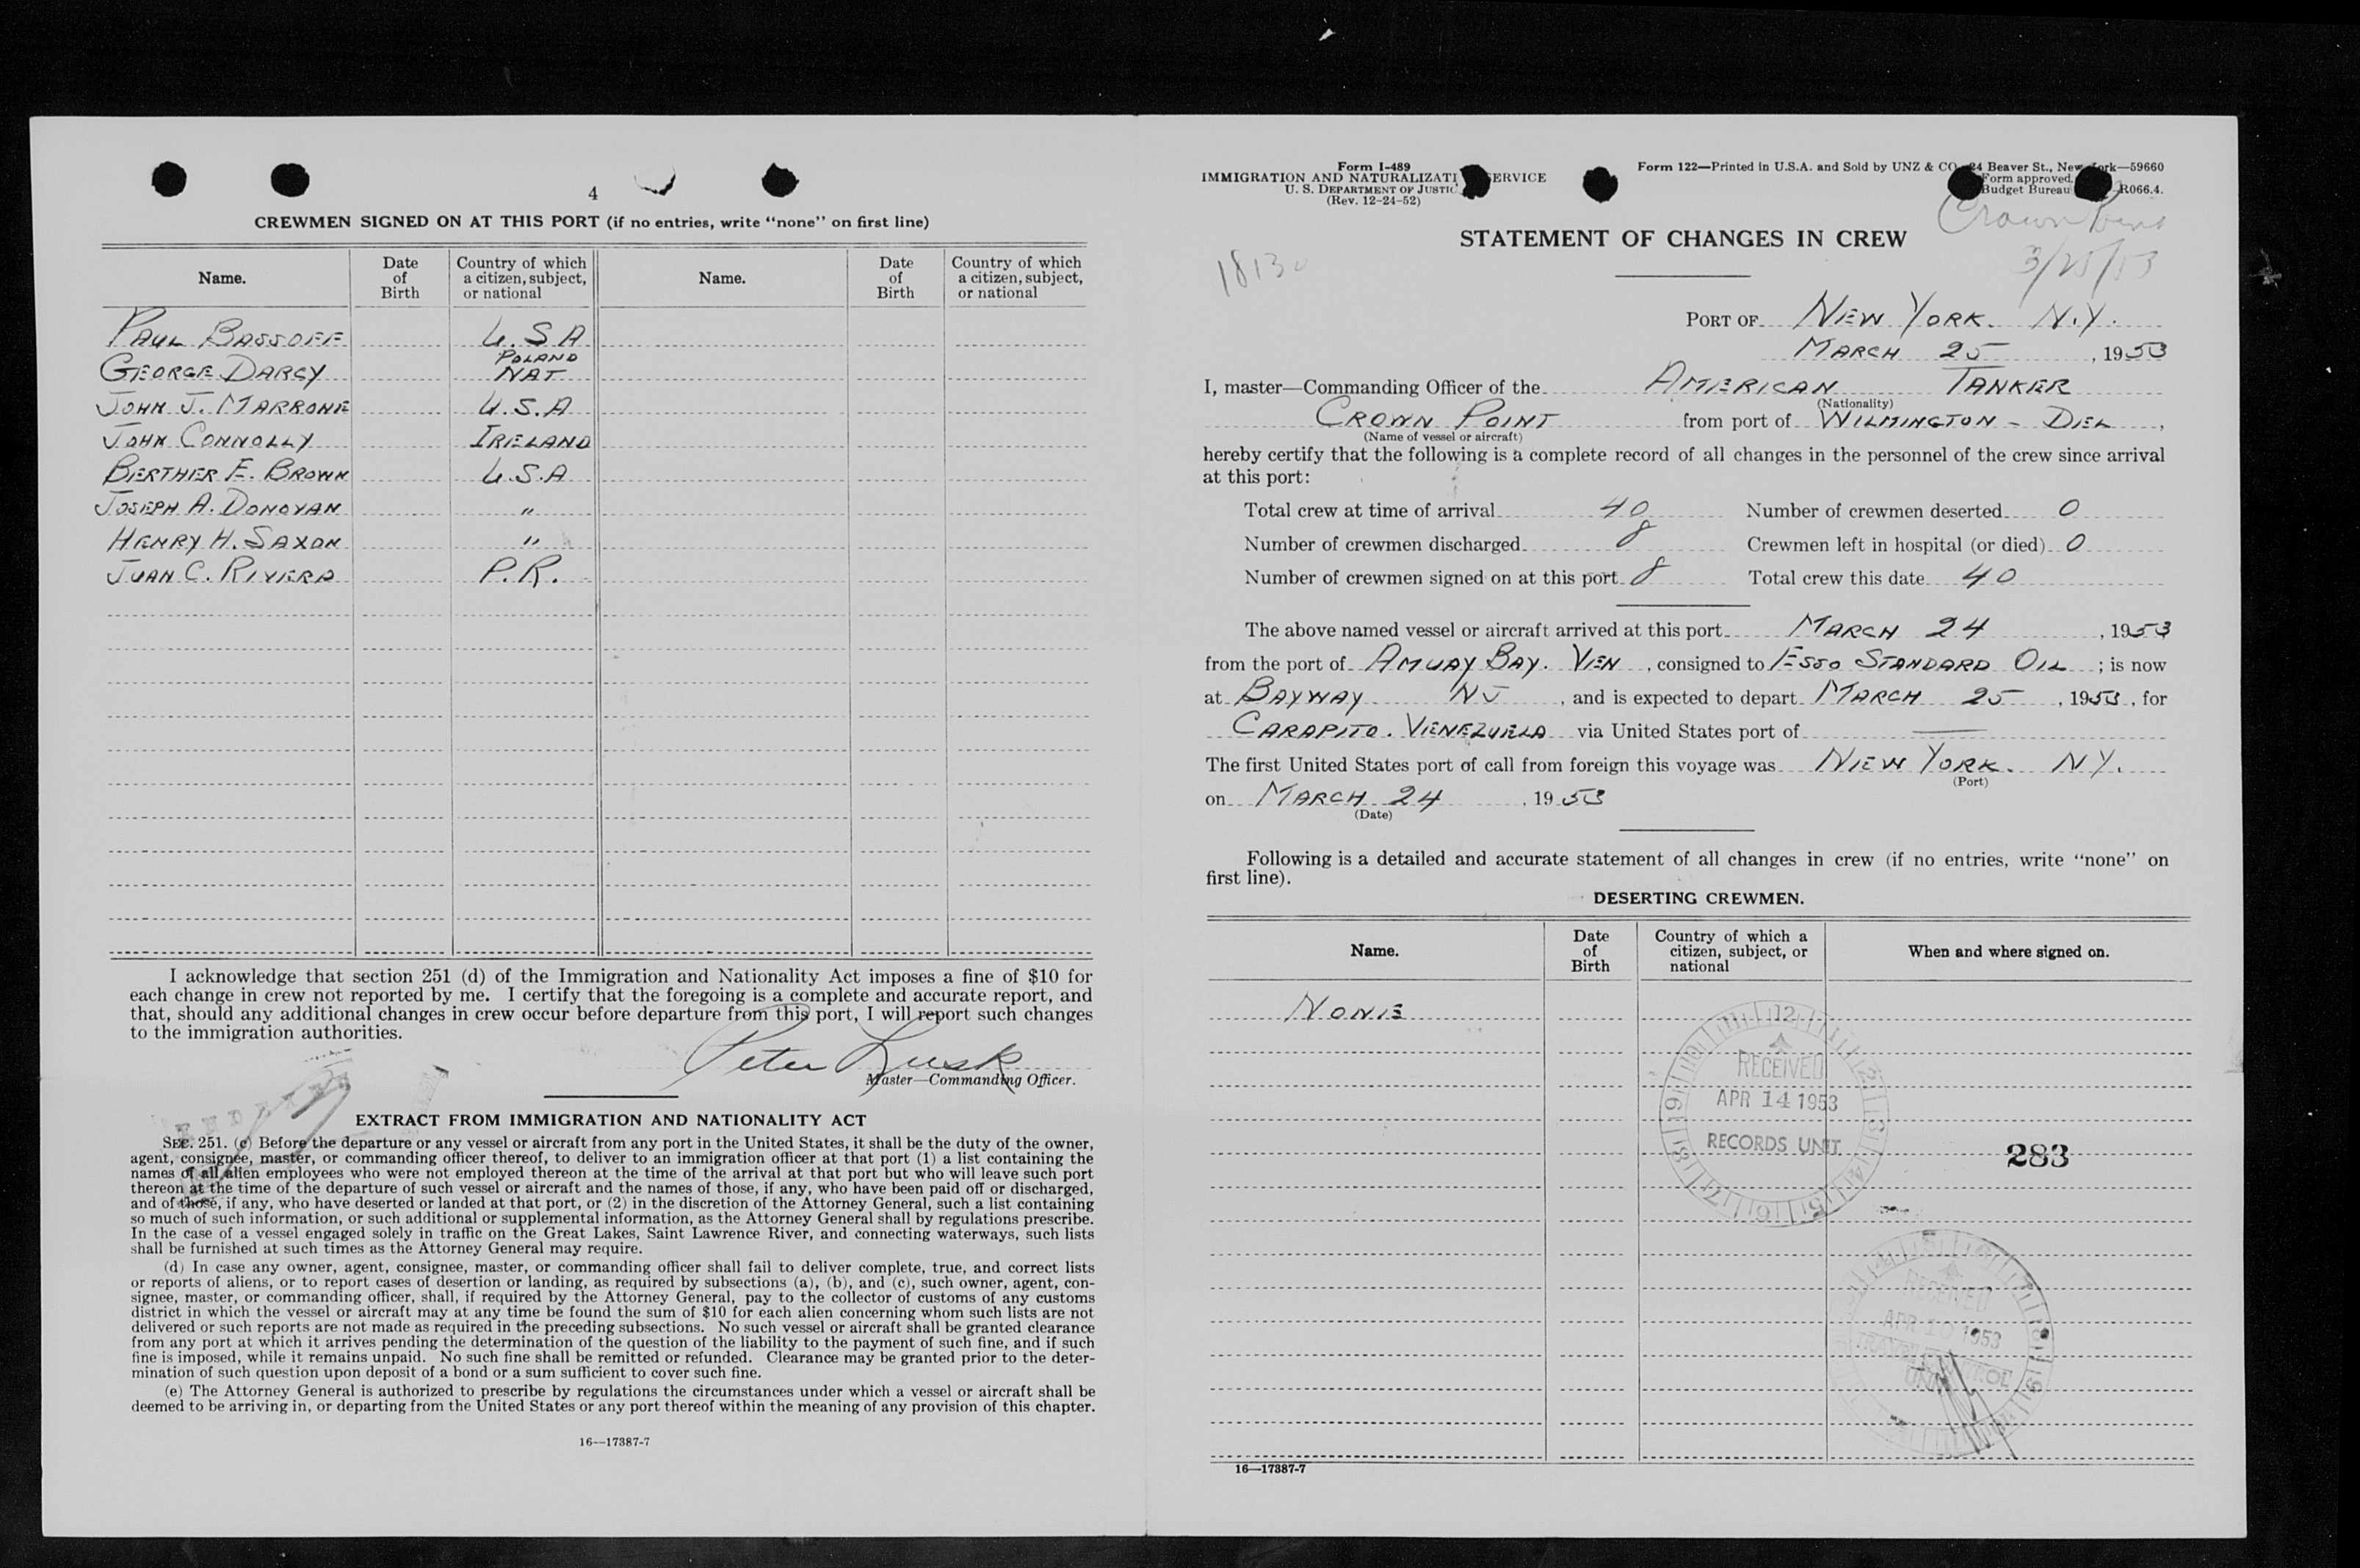 4
CREWMEN SIGNED ON AT THIS PORT (if no entries, write “none” on first line)
Name. Date of Birth Country of which a citizen, subject, or national Name. Date of Birth Country of which a citizen, subject, or national
PAUL BASSOFF U.S.A
GEORGE DARCY POLAND NAT
JOHN J. MARRONE U.S.A
JOHN CONNOLLY IRELAND
BERTHER E. BROWN U.S.A
JOSEPH A. DONOVAN "
HENRY H. SAXON "
JUAN C. RIVERA P.R.
I acknowledge that section 251 (d) of the Immigration and Nationality Act imposes a fine of $10 for
each change in crew not reported by me. I certify that the foregoing is a complete and accurate report, and
that, should any additional changes in crew occur before departure from this port, I will report such changes
to the immigration authorities.
Peter Lusk
Master—Commanding Officer.
EXTRACT FROM IMMIGRATION AND NATIONALITY ACT
SEC. 251. (c) Before the departure or any vessel or aircraft from any port in the United States, it shall be the duty of the owner,
agent, consignee, master, or commanding officer thereof, to deliver to an immigration officer at that port (1) a list containing the
names of all alien employees who were not employed thereon at the time of the arrival at that port but who will leave such port
thereon at the time of the departure of such vessel or aircraft and the names of those, if any, who have been paid off or discharged,
and of those, if any, who have deserted or landed at that port, or (2) in the discretion of the Attorney General, such a list containing
so much of such information, or such additional or supplemental information, as the Attorney General shall by regulations prescribe.
In the case of a vessel engaged solely in traffic on the Great Lakes, Saint Lawrence River, and connecting waterways, such lists
shall be furnished at such times as the Attorney General may require.
(d) In case any owner, agent, consignee, master, or commanding officer shall fail to deliver complete, true, and correct lists
or reports of aliens, or to report cases of desertion or landing, as required by subsections (a), (b), and (c), such owner, agent, con-
signee, master, or commanding officer, shall, if required by the Attorney General, pay to the collector of customs of any customs
district in which the vessel or aircraft may at any time be found the sum of $10 for each alien concerning whom such lists are not
delivered or such reports are not made as required in the preceding subsections. No such vessel or aircraft shall be granted clearance
from any port at which it arrives pending the determination of the question of the liability to the payment of such fine, and if such
fine is imposed, while it remains unpaid. No such fine shall be remitted or refunded. Clearance may be granted prior to the deter-
mination of such question upon deposit of a bond or a sum sufficient to cover such fine.
(e) The Attorney General is authorized to prescribe by regulations the circumstances under which a vessel or aircraft shall be
deemed to be arriving in, or departing from the United States or any port thereof within the meaning of any provision of this chapter.
16—17387-7
Form I-489
IMMIGRATION AND NATURALIZATI ERVICE
U. S. DEPARTMENT OF JUSTIC
(Rev. 12-24-52)
Form 122—Printed in U.S.A. and Sold by UNZ & CO. 24 Beaver St., New York—59660
Form approved.
Budget Bureau R066.4.
Crown Point
3/25/53
STATEMENT OF CHANGES IN CREW
PORT OF NEW YORK. N.Y.
MARCH 25, 1953
I, master—Commanding Officer of the AMERICAN TANKER
(Nationality)
CROWN POINT from port of WILMINGTON - DEL,
(Name of vessel or aircraft)
hereby certify that the following is a complete record of all changes in the personnel of the crew since arrival
at this port:
Total crew at time of arrival 40 Number of crewmen deserted 0
Number of crewmen discharged 8 Crewmen left in hospital (or died) 0
Number of crewmen signed on at this port 8 Total crew this date 40
The above named vessel or aircraft arrived at this port MARCH 24, 1953
from the port of AMUAY BAY. VEN, consigned to ESSO STANDARD OIL; is now
at BAYWAY NJ, and is expected to depart MARCH 25, 1953, for
CARAPITO. VENEZUELA via United States port of —
The first United States port of call from foreign this voyage was NEW YORK. NY.
(Port)
on MARCH 24, 1953
(Date)
Following is a detailed and accurate statement of all changes in crew (if no entries, write “none” on
first line).
DESERTING CREWMEN.
Name. Date of Birth Country of which a citizen, subject, or national When and where signed on.
NONE
RECEIVED
APR 14 1953
RECORDS UNIT
283
RECEIVED
APR 10 1953
16—17387-7